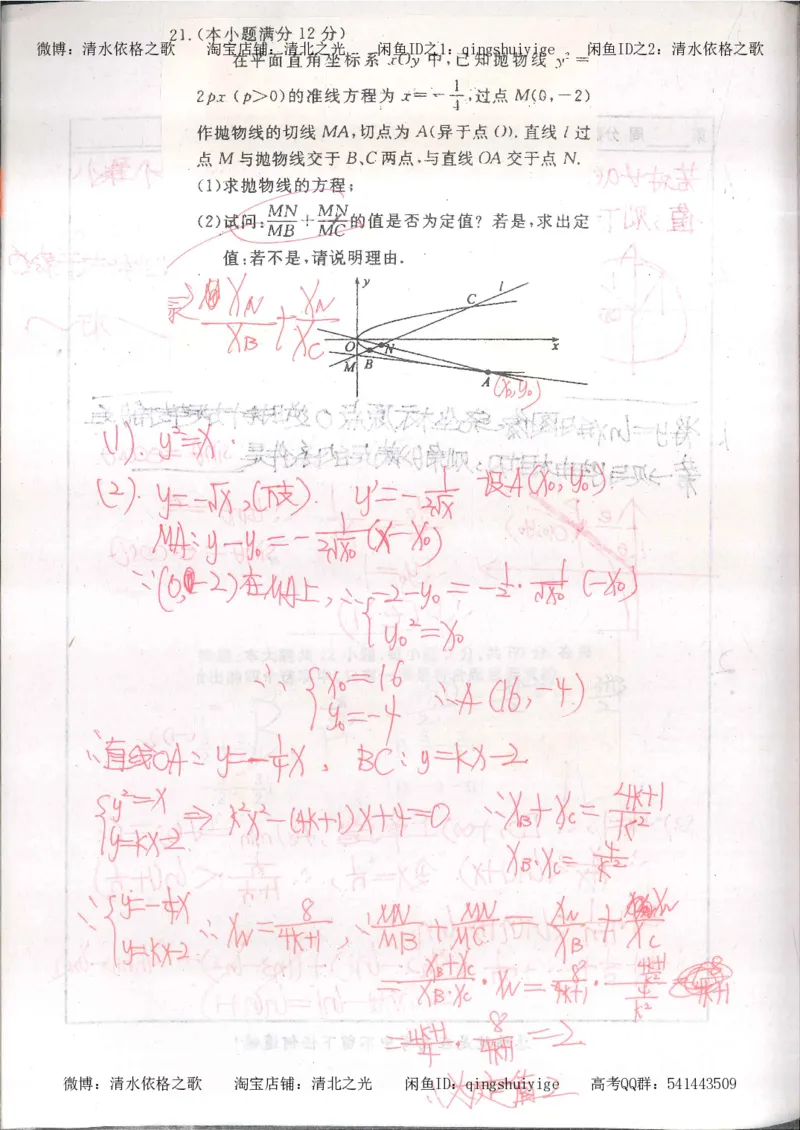 21.(本小题满分 12 分)
微博：清水依格之歌 淘宝店铺：清北之光 闲鱼ID之1：qingshuiyige 闲鱼ID之2：清水依格之歌
在平面直角坐标系 xOy 中,已知抛物线 y²=
2px (p>0)的准线方程为 x=-1/4,过点 M(0,-2)
作抛物线的切线 MA,切点为 A(异于点 O).直线 l 过
点 M 与抛物线交于 B、C 两点,与直线 OA 交于点 N.
(1)求抛物线的方程;
(2)试问:MN/MB+MN/MC的值是否为定值? 若是,求出定
值;若不是,请说明理由.
求 X_N/X_B + X_N/X_C
y C l
O N x
M B
A (x₀,y₀)
(1). y²=x.
(2). y=-√x,(下支). y'=-1/(2√x) 设A(x₀,y₀)
MA: y-y₀=-1/(2√x₀)(x-x₀)
∵(0,-2)在MA上, ∴ { -2-y₀=-1/2·1/√x₀(-x₀)
y₀²=x₀
∴ { x₀=16
y₀=-4 ∴A(16,-4)
∴直线OA: y=-1/4x, BC: y=kx-2
{ y²=x
y=kx-2 ⇒ k²x²-(4k+1)x+4=0 ∴X_B+X_C=(4k+1)/k²
X_B·X_C=4/k²
∴ { y=-1/4x
y=kx-2 ∴X_N=8/(4k+1), ∴MN/MB+MN/MC=X_N/X_B+X_N/X_C
=(X_B+X_C)/(X_B·X_C)·X_N=8/(4k+1)·((4k+1)/k²)/(4/k²)
=(4k+1)/4·8/(4k+1)=2
∴为定值2
微博：清水依格之歌 淘宝店铺：清北之光 闲鱼ID：qingshuiyige 高考QQ群：541443509